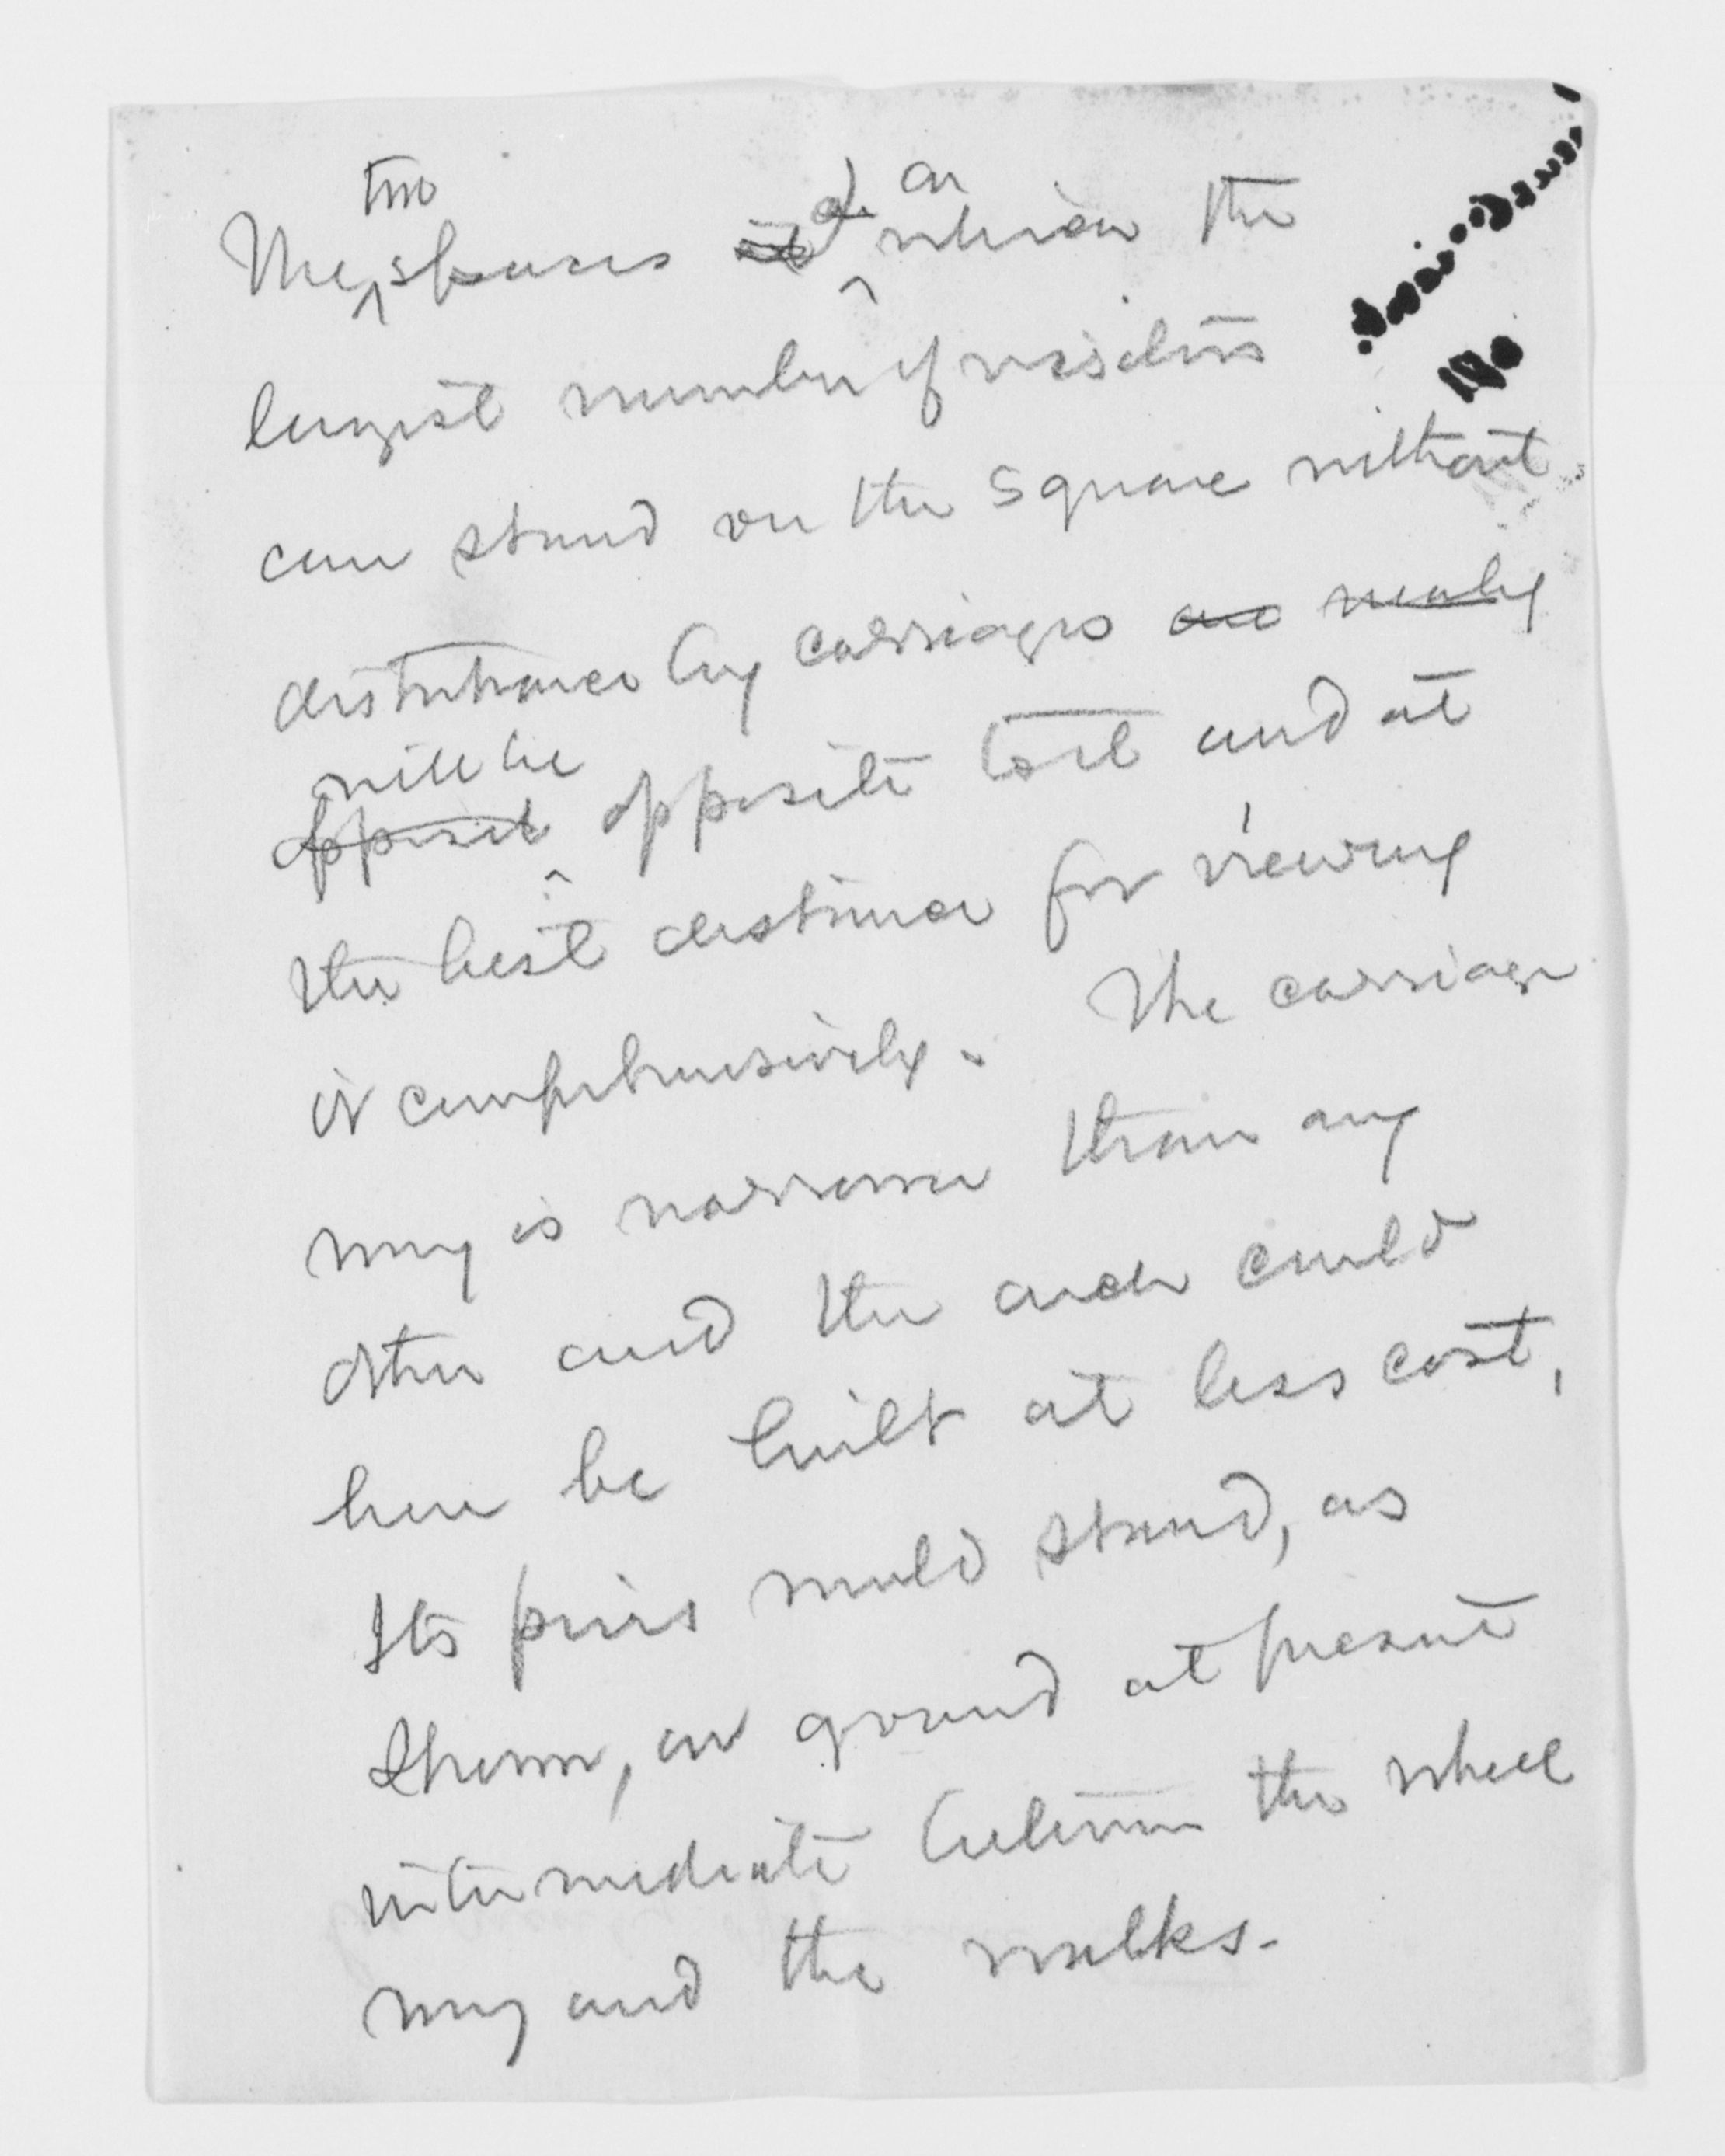 two
on
The spaces at which the
largest number of visitors
can stand on the square without
disturbance by carriages are nearly
will be
opposit opposite to it and at
the best distance for viewing
it comprehensively. The carriage
way is narrower than any
other and the arch could
here be built at less cost,
Its piers would stand, as
shown, on ground at present
intermediate between the wheel
way and the walks.